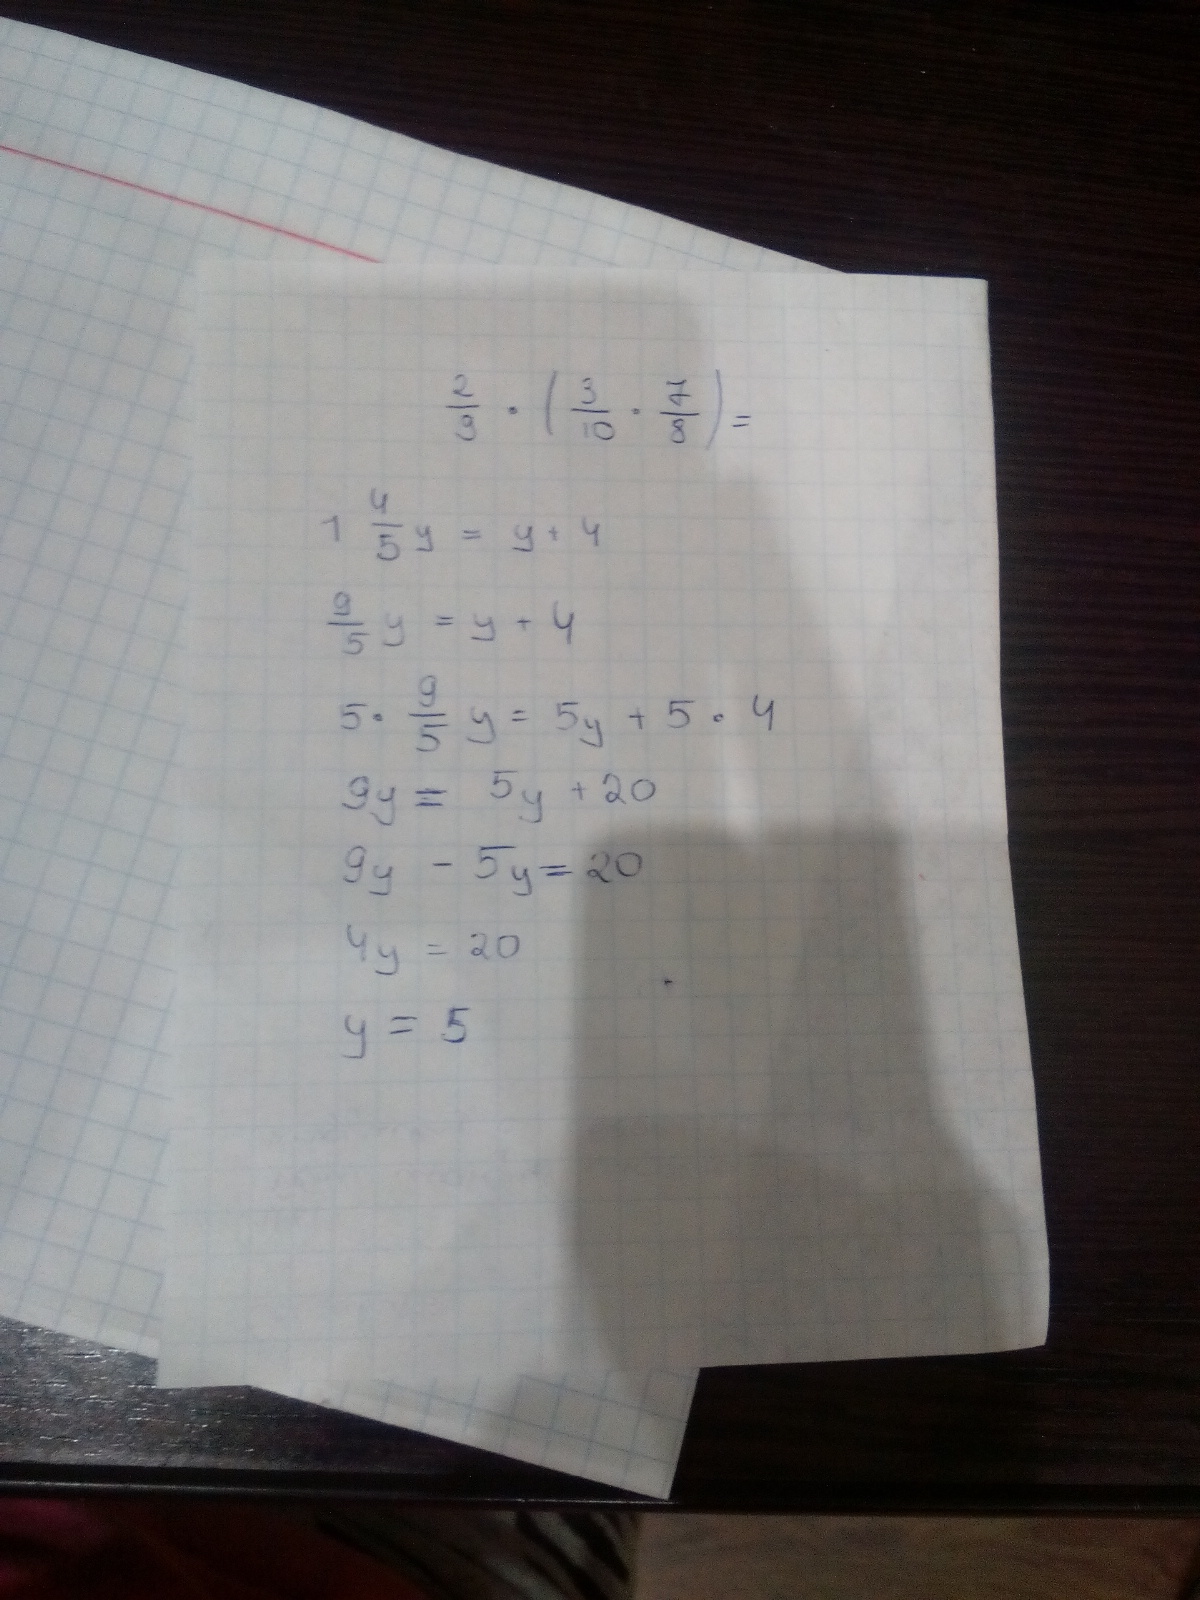 2/9 · (3/10 · 7/8) =
1 4/5 y = y + 4
9/5 y = y + 4
5 · 9/5 y = 5y + 5 · 4
9y = 5y + 20
9y - 5y = 20
4y = 20
y = 5